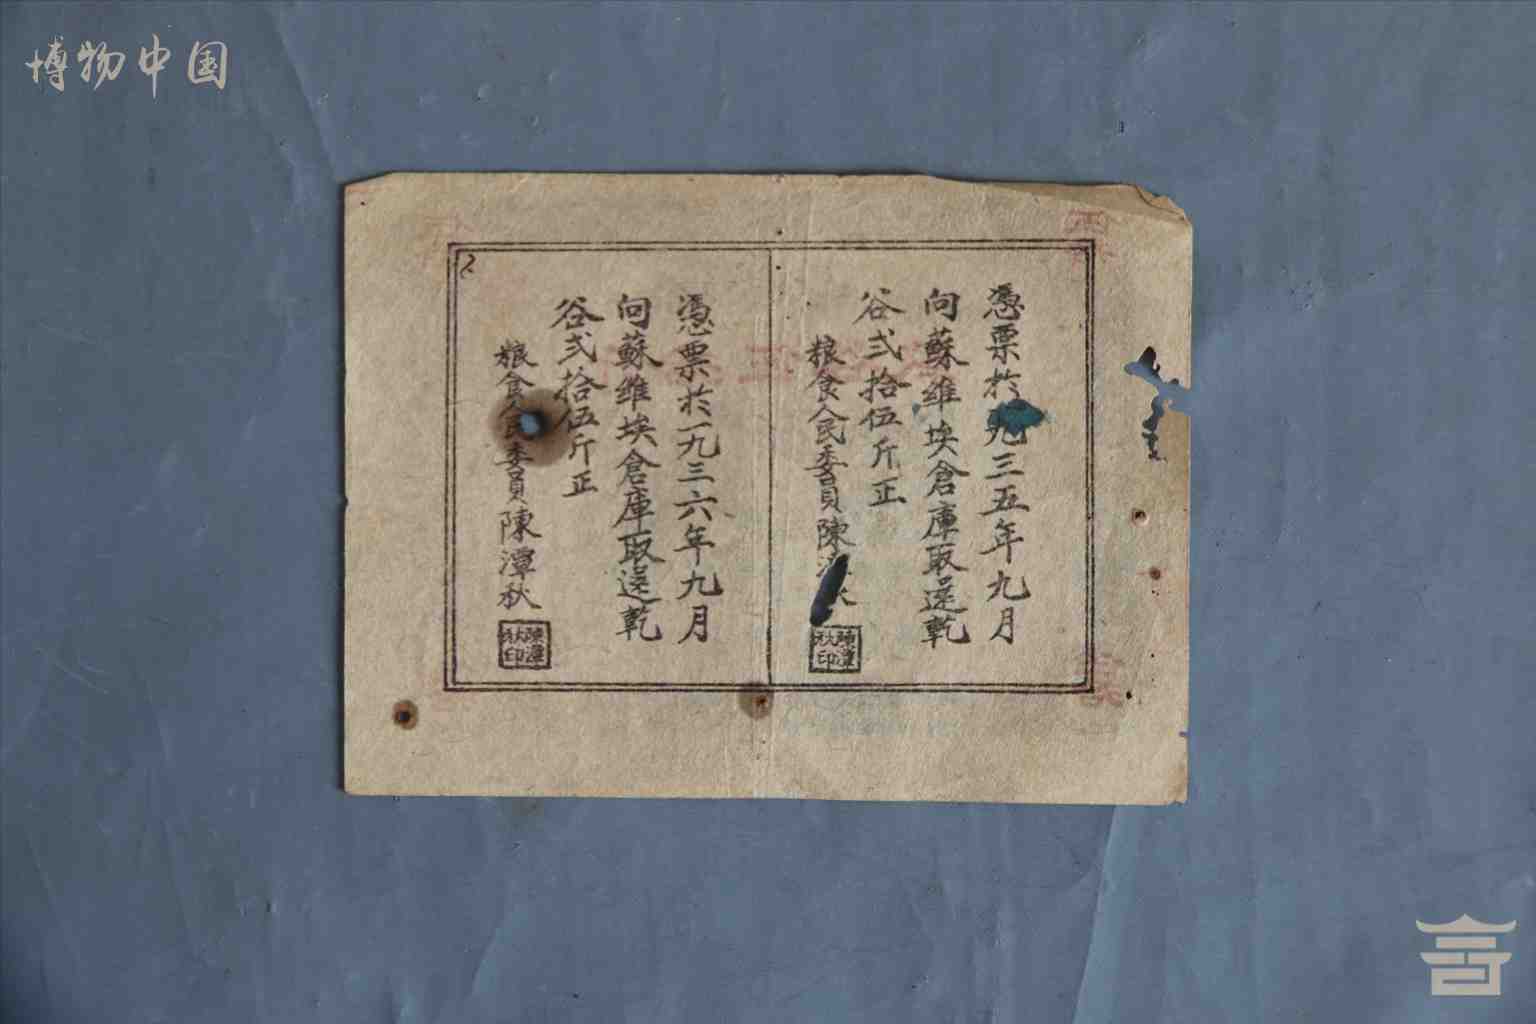 博物中国
憑票於一九三五年九月
向蘇維埃倉庫取還乾
谷弍拾伍斤正
粮食人民委員陳潭秋
陳潭秋印
憑票於一九三六年九月
向蘇維埃倉庫取還乾
谷弍拾伍斤正
粮食人民委員陳潭秋
陳潭秋印